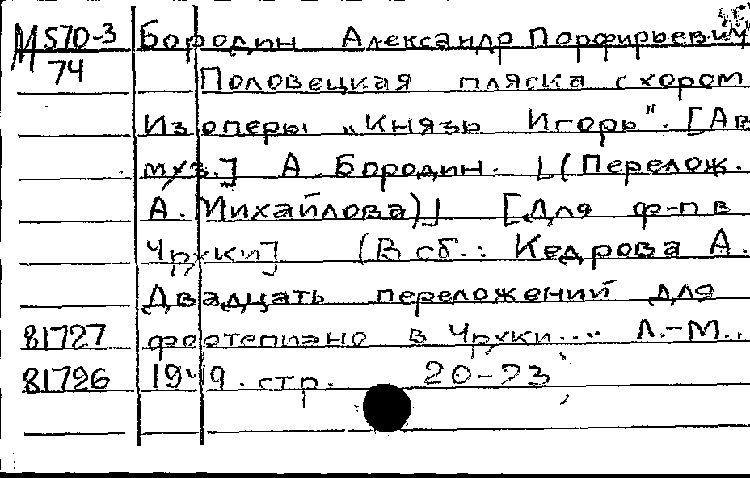 М 570-3 Бородин Александр Порфирьевич
74 Половецкая пляска с хором
Из оперы „Князь Игорь". [Ав
муз.] А Бородин. [(Перелож.
А. Михайлова)] [Для ф-п в
4руки] (В сб.: Кедрова А.
Двадцать переложений для
81727 фортепиано в 4руки... Л.-М..
81726 1949. стр. 20-23